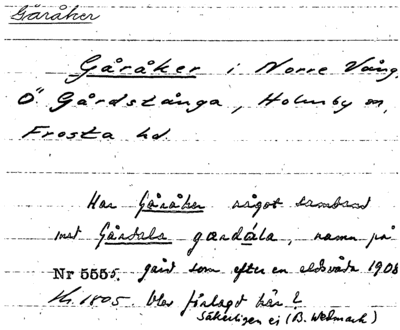 Gåråker
Gåråker i Norre Vång,
Ö. Gårdstånga, Holmby sn,
Frosta hd.
Har Gåråker något samband
med Gårdala gårdåla, namn på
Nr 5555. gård som efter en eldsvåda 1908
blev förlagd här?
Säkerligen ej (B. Wedmark)